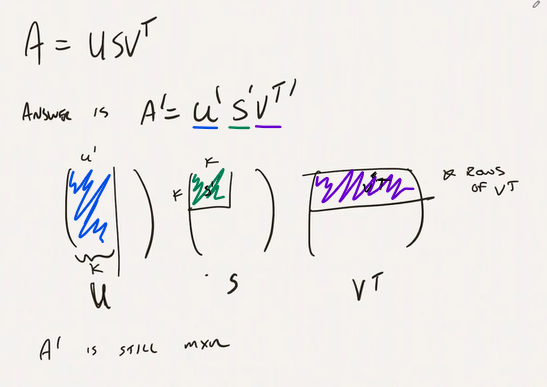 A = USVᵀ
ANSWER IS A' = U' S' Vᵀ'
U'
K
U
K
K
S'
S
K ROWS
OF VT
Vᵀ
A' IS STILL mxn